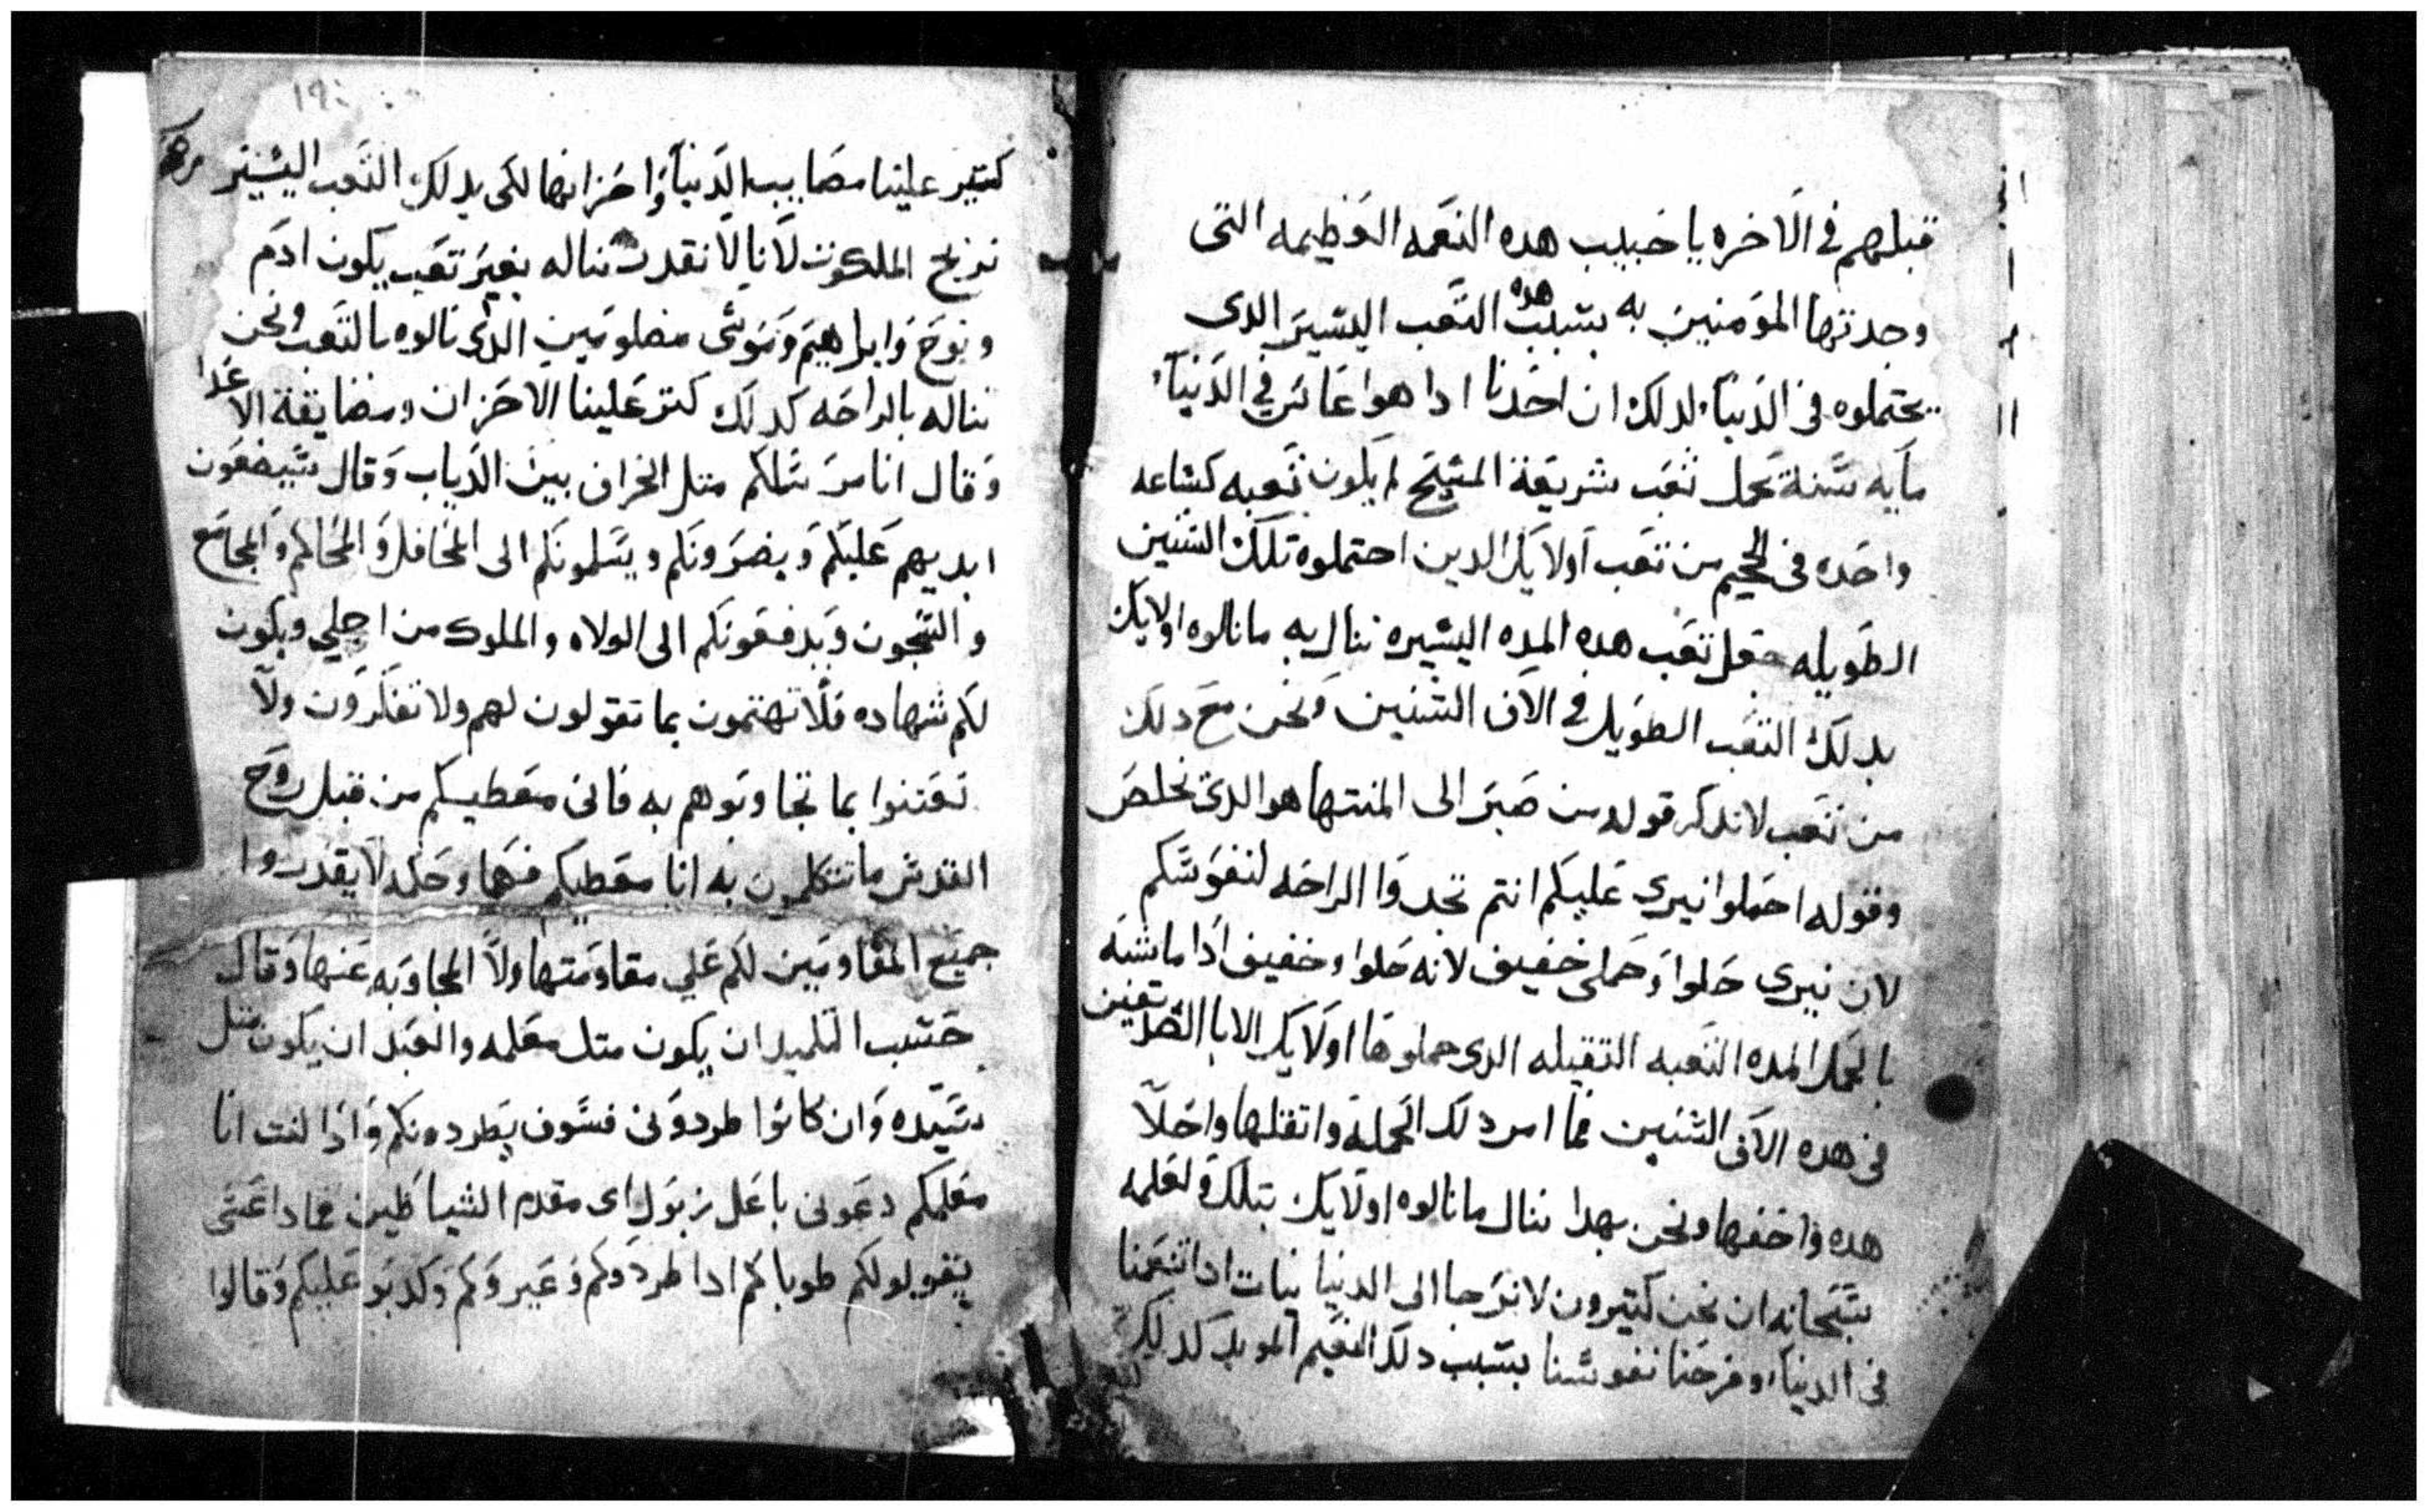 قبلهم في الاخره يا حبيب هده النعمه العظيمه التى
وجدتها المومنين به بسبب هده التعب اليسير الدى
يحتملوه فى الدنيا لدلك ان احدنا ادا هوا عاش في الدنيا
مايه سنة يحمل تعب شريعة المسيح لم يكون تعبه كساعه
واحده فى الجحيم من تعب اولايك الدين احتملوه تلك السنين
الطويله فعل تعب هده المده اليسيره ننال به ما نالوه اولايك
بدلك التعب الطويل في الاف السنين ونحن مع دلك
من تعب لاندكر قوله من صبر الى المنتها هو الدى يخلص
وقوله احملوا نيرى عليكم انتم تجدوا الراحه لنفوسكم
لان نيرى حلوا وحملى خفيف لانه حلوا وخفيف ادا ما شبه
بالحمل المده التعبه التقيله الدى حملوها اولايك الابا الصديقين
فى هده الاف السنين فما امر دلك الحملة واتقلها واحلا
هده واخفها ونحن بهدا ننال ما نالوه اولايك بتلك ولعلمه
سبحانه ان نحن كتيرون لا نرجا الى الدنيا بنات ادا تنعمنا
فى الدنيا وفرحنا نفوسنا بسبب دلك النعيم الموبد كدلك
١٩٤
كتير علينا مصايب الدنيا واحزانها لكى بدلك التعب اليسير
نربح الملكوت لانا لا نقدر نناله بغير تعب يكون ادم
ونوح وابراهيم وموسى مضلومين الدى نالوه بالتعب ونحن
نناله بالراحه كدلك كتر علينا الاحزان ومضايقة الاعدا
وقال انا مرسلكم متل الخراف بين الدياب وقال سيضعون
ايديهم عليكم ويضرونكم ويسلمونكم الى المحافل والمحاكم والمجامع
والسجون ويدفعونكم الى الولاه والملوك من اجلي ويكون
لكم شهاده فلا تهتمون بما تقولون لهم ولا تفكرون ولا
تعتنوا بما تجاوبوهم به فانى معطيكم من قبل روح
القدس ما تتكلمون به انا معطيكم فهما وحكمه لا يقدروا
جميع المقاومين لكم علي مقاومتها ولا المجاوبه عنها وقال
حسب التلميد ان يكون متل معلمه والعبد ان يكون متل
سيده وان كانوا طردونى فسوف يطردونكم وادا كنت انا
معلمكم دعونى باعل زبول اى مقدم الشياطين فمادا عسى
يقولو لكم طوباكم ادا طردوكم وعيروكم وكدبو عليكم وقالوا